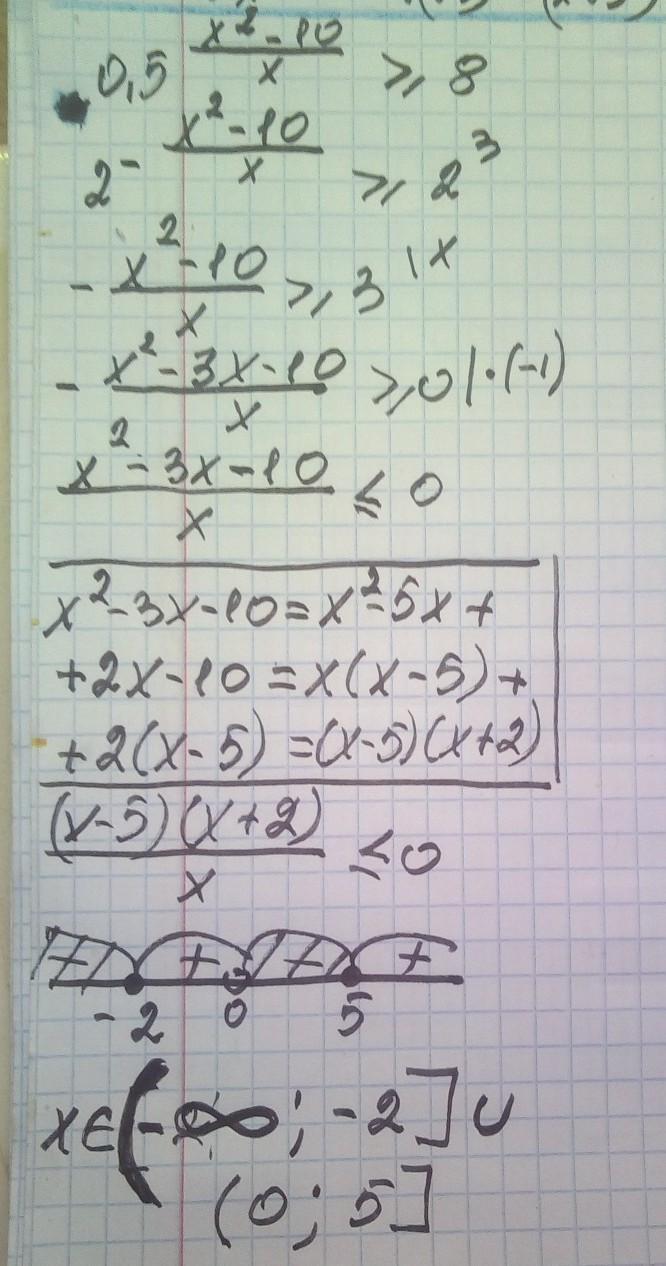 0,5^((x²-10)/x) ⩾ 8
2^(-(x²-10)/x) ⩾ 2³
-(x²-10)/x ⩾ 3 |x
-(x²-3x-10)/x ⩾ 0 |·(-1)
(x²-3x-10)/x ≤ 0
x²-3x-10=x²-5x+
+2x-10=x(x-5)+
+2(x-5)=(x-5)(x+2)
(x-5)(x+2)/x ≤ 0
- + - +
-2 0 5
x∈(-∞; -2]∪
(0; 5]